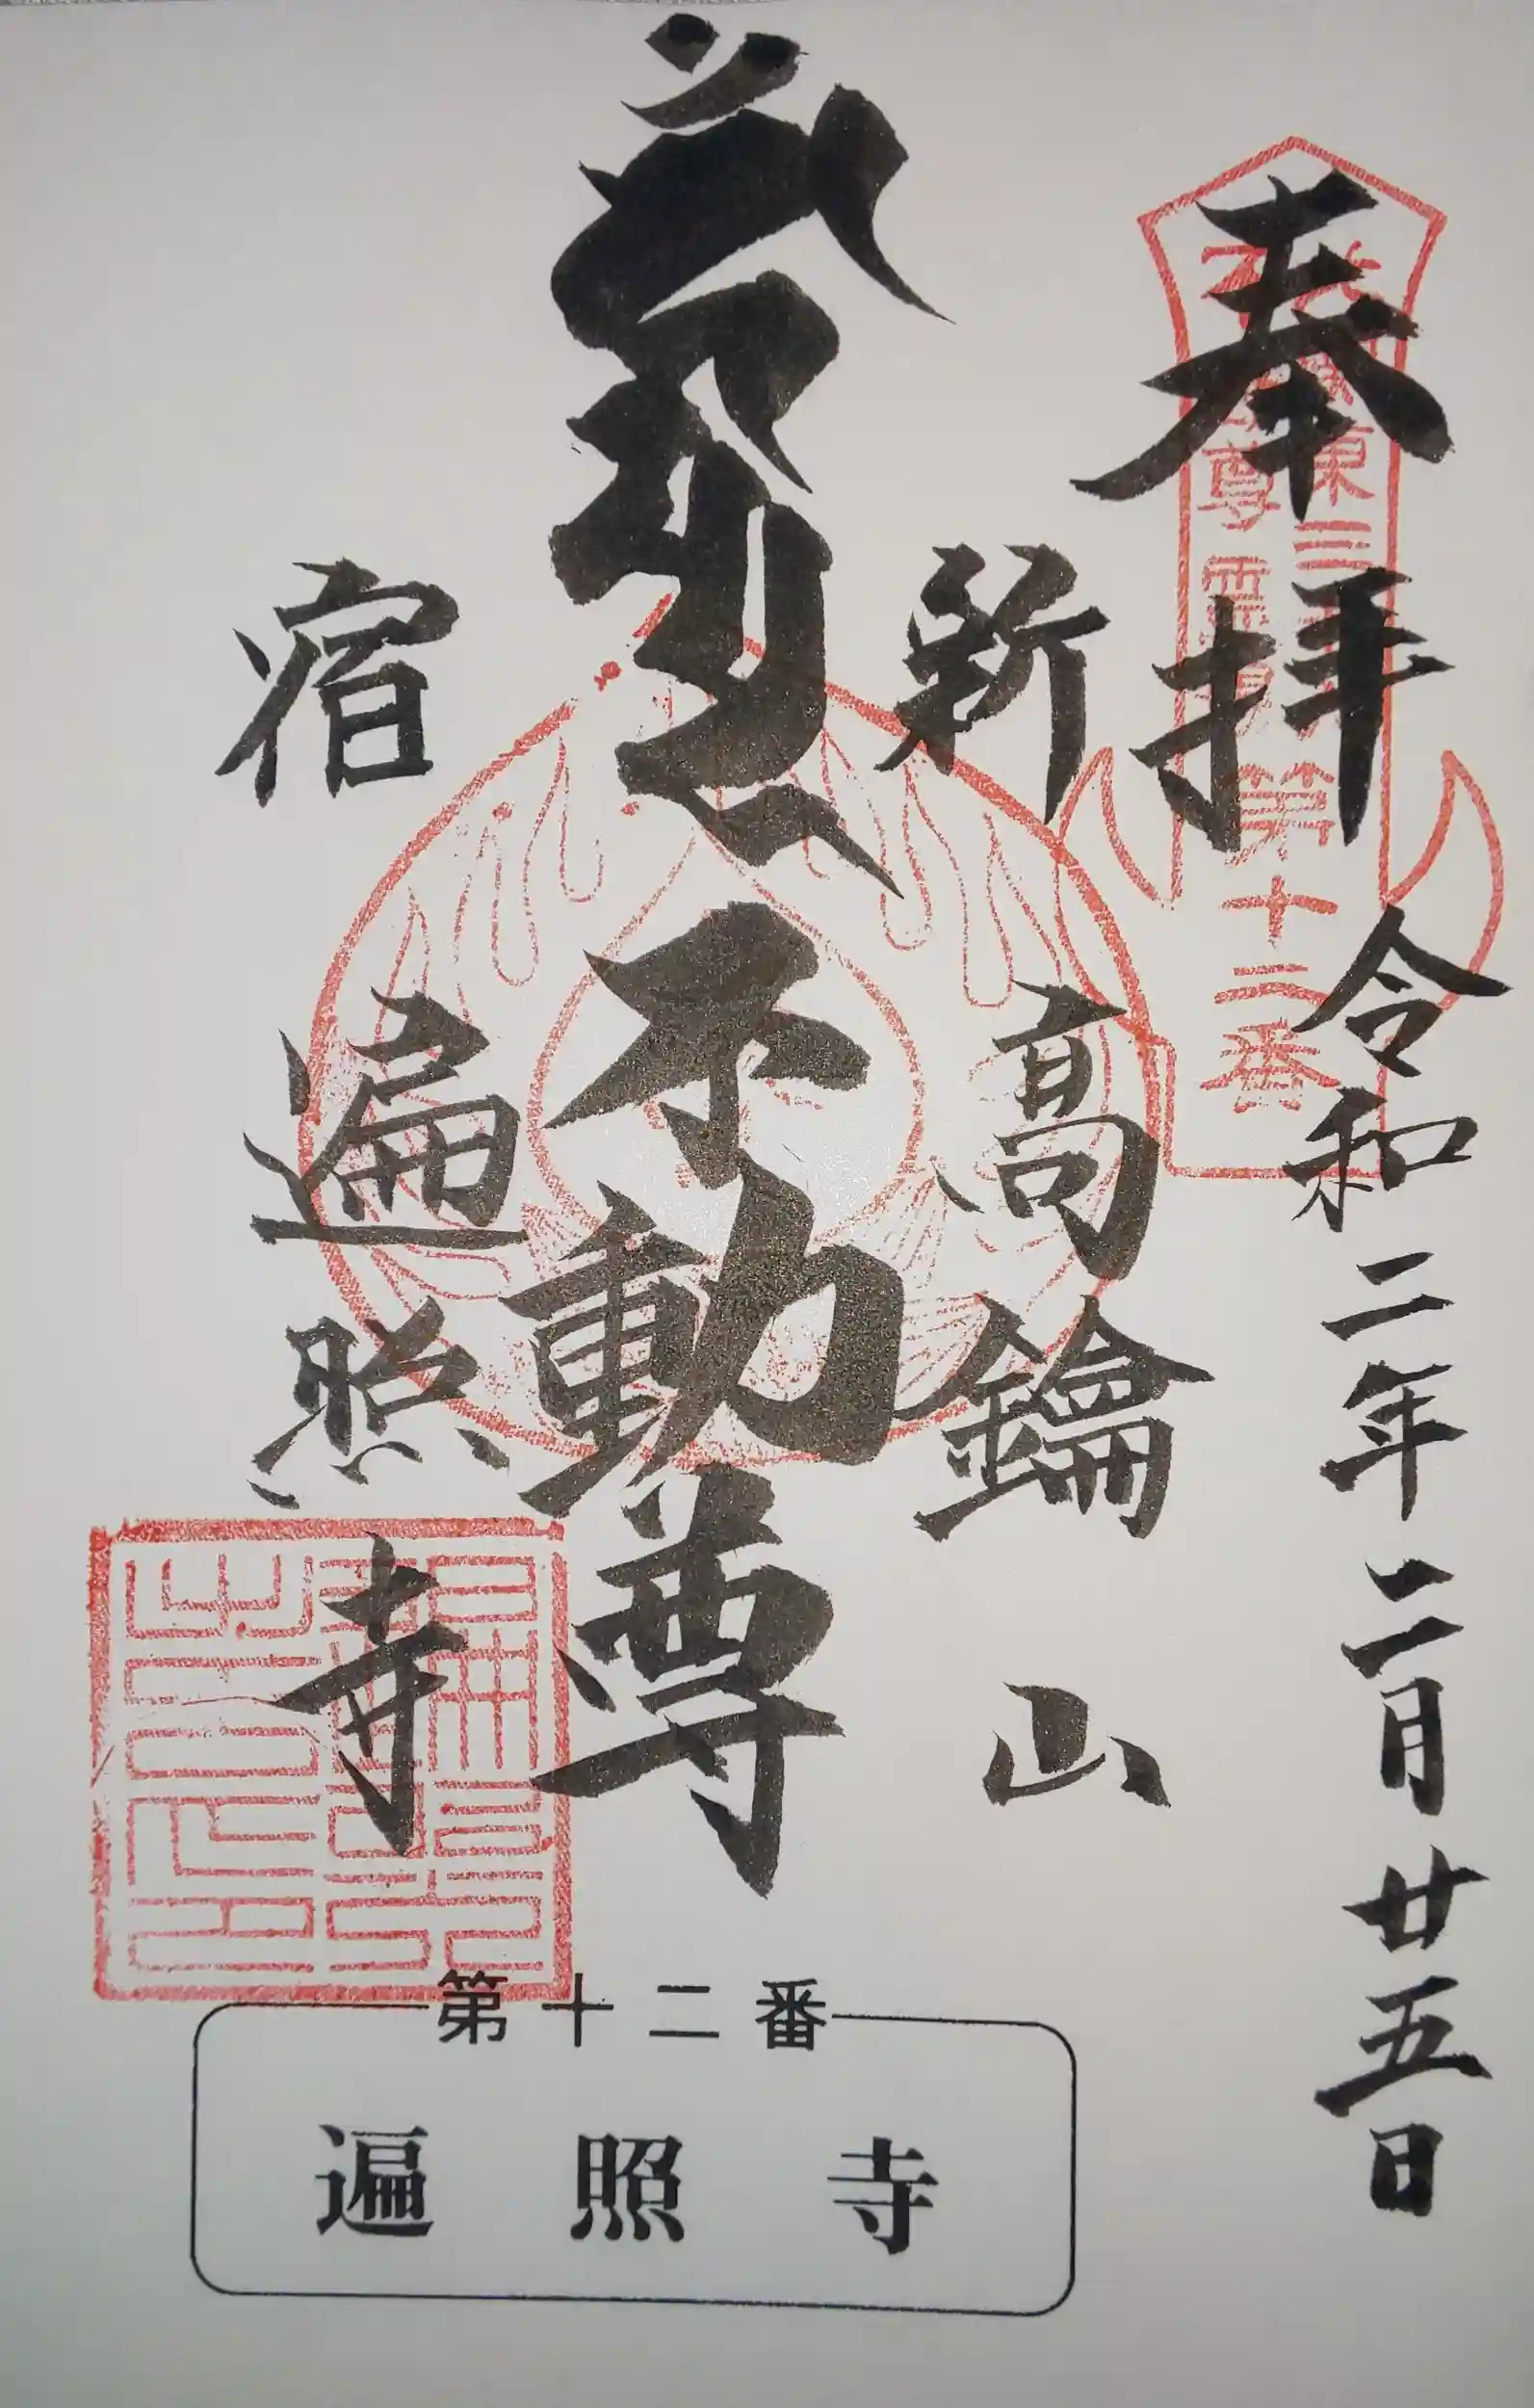 奉拝
令和二年二月廿五日
東三
尊霊
第十二番
新高鑰山
不動尊
宿遍照寺
第十二番
遍照寺